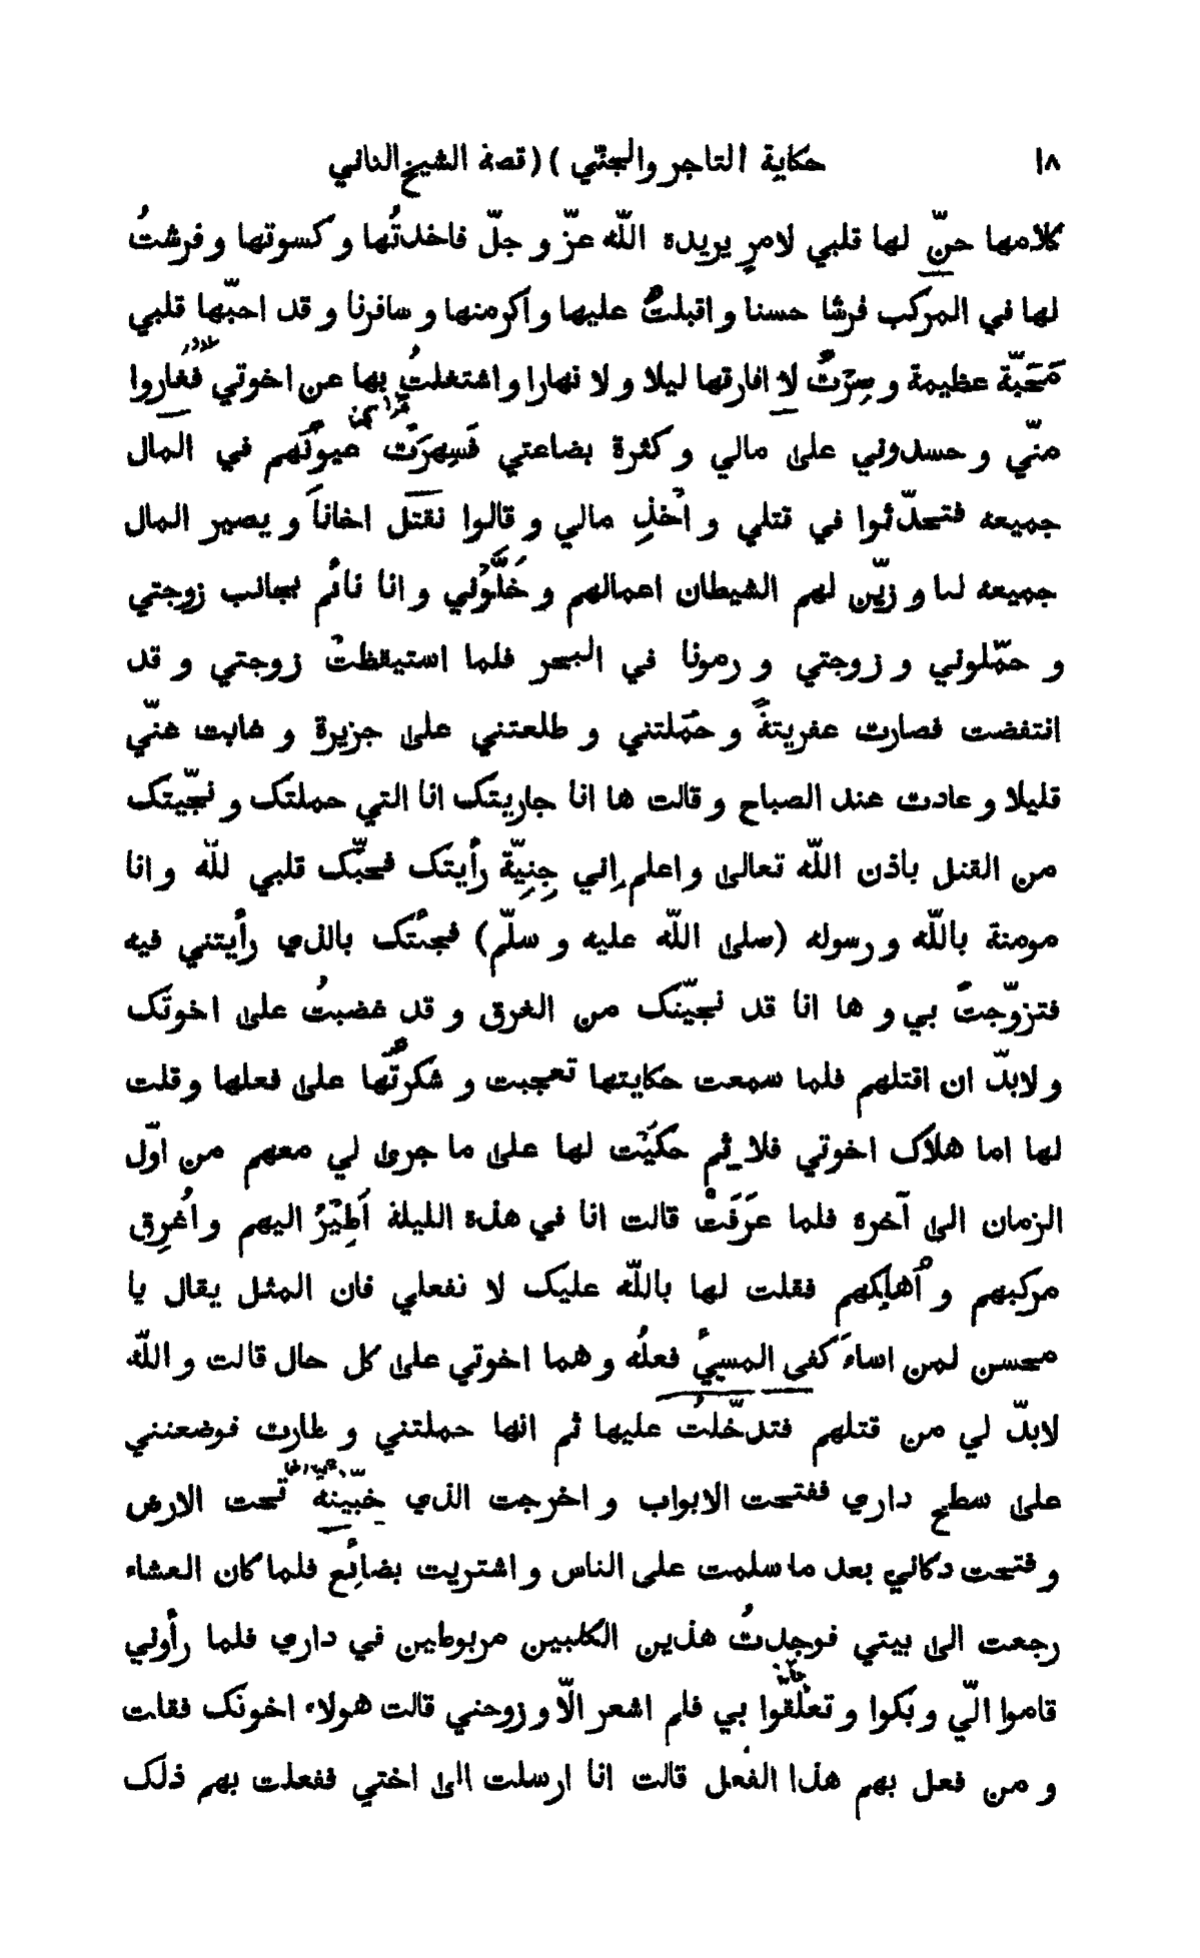 ١٨ حكاية التاجر والجنّي )( قصة الشيخ الثاني
كلامها حنّ لها قلبي لامرٍ يريده اللّه عزّ و جلّ فاخذتُها و كسوتها و فرشتُ
لها في المركب فرشا حسنا و اقبلتُ عليها و اكرمتها و سافرنا و قد احبّها قلبي
مَحَبّة عظيمة و صِرْتُ لا افارقها ليلا و لا نهارا و اشتغلتُ بها عن اخوتي فغاروا
منّي و حسدوني على مالي و كثرة بضاعتي فَسهِرَتْ عيونُهم في المال
جميعه فتحدّثوا في قتلي و اخْذِ مالي و قالوا نقتل اخانا و يصير المال
جميعه لنا و زيّن لهم الشيطان اعمالهم و خَلَّوْني و انا نائم بجانب زوجتي
و حمّلوني و زوجتي و رمونا في البحر فلما استيقظتْ زوجتي و قد
انتفضت فصارت عفريتةً و حمَلتني و طلعتني على جزيرة و غابت عنّي
قليلا و عادت عند الصباح و قالت ها انا جاريتك انا التي حملتك و نجّيتك
من القتل باذن اللّه تعالى و اعلم اِني جِنِيّة رأيتك فحبّك قلبي للّه و انا
مومنة باللّه و رسوله (صلى اللّه عليه و سلّم) فجئتك بالذي رأيتني فيه
فتزوّجتَ بي و ها انا قد نجيّتك من الغرق و قد غضبتُ على اخوتك
و لابدّ ان اقتلهم فلما سمعت حكايتها تعجبت و شكرتُها على فعلها و قلت
لها اما هلاك اخوتي فلا ثم حكَيْت لها على ما جرى لي معهم من اوّل
الزمان الى آخره فلما عرَفَتْ قالت انا في هذه الليلة اَطِيْرُ اليهم و اُغرِق
مركبهم و اُهلِكهم فقلت لها باللّه عليك لا تفعلي فان المثل يقال يا
محسن لمن اساءَ كفى المسيءُ فعلُه و هما اخوتي على كل حال قالت و اللّه
لابدّ لي من قتلهم فتدخّلتُ عليها ثم انها حملتني و طارت فوضعتني
على سطح داري ففتحت الابواب و اخرجت الذي خبّيته تحت الارض
و فتحت دكاني بعد ما سلمت على الناس و اشتريت بضائع فلما كان العشاء
رجعت الى بيتي فوجدتُ هذين الكلبين مربوطين في داري فلما رأوني
قاموا اليّ و بكوا و تعلّقوا بي فلم اشعر الّا و زوجتي قالت هولاء اخوتك فقلت
و من فعل بهم هذا الفعل قالت انا ارسلت الى اختي ففعلت بهم ذلك